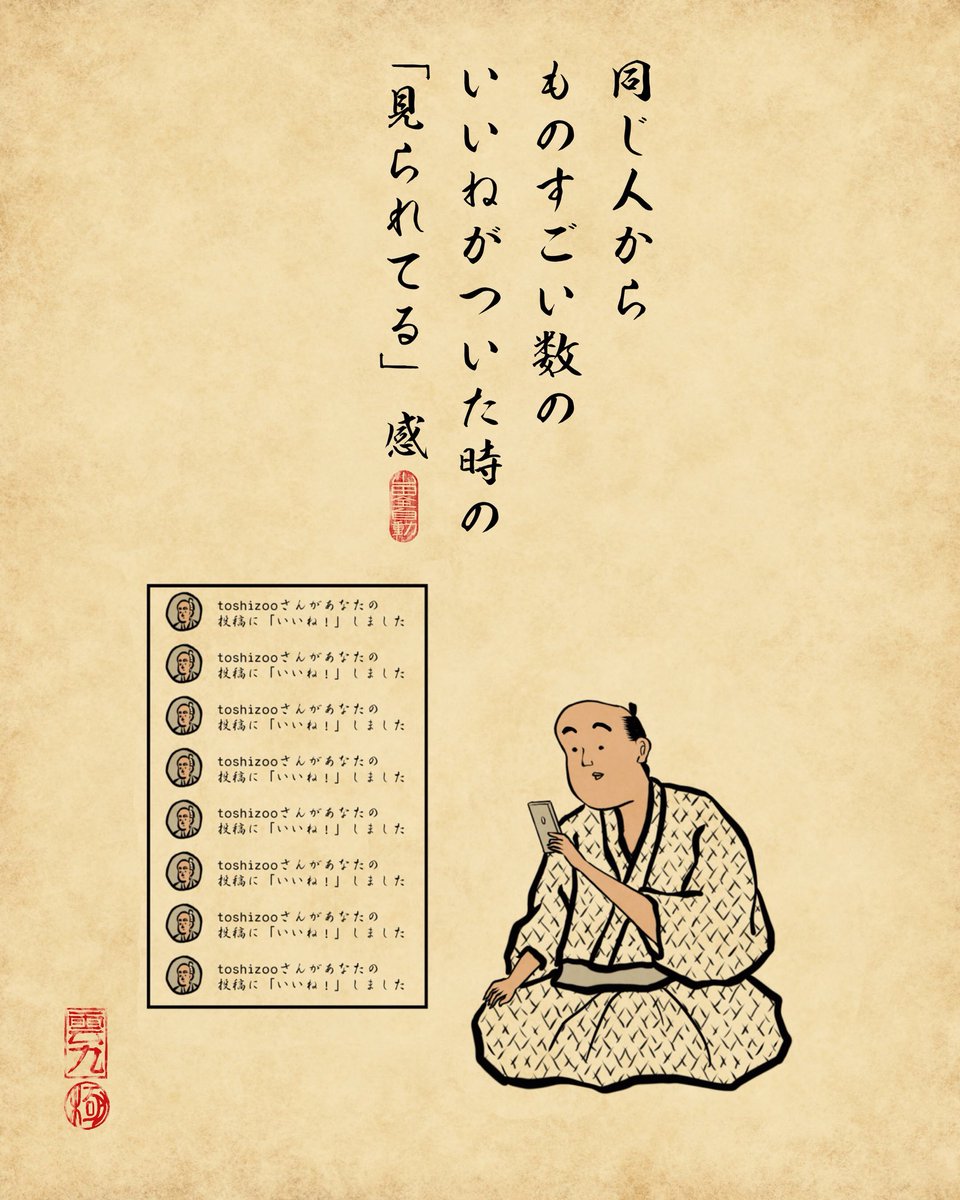 同じ人から
ものすごい数の
いいねがついた時の
「見られてる」感
toshizooさんがあなたの
投稿に「いいね!」しました
toshizooさんがあなたの
投稿に「いいね!」しました
toshizooさんがあなたの
投稿に「いいね!」しました
toshizooさんがあなたの
投稿に「いいね!」しました
toshizooさんがあなたの
投稿に「いいね!」しました
toshizooさんがあなたの
投稿に「いいね!」しました
toshizooさんがあなたの
投稿に「いいね!」しました
toshizooさんがあなたの
投稿に「いいね!」しました